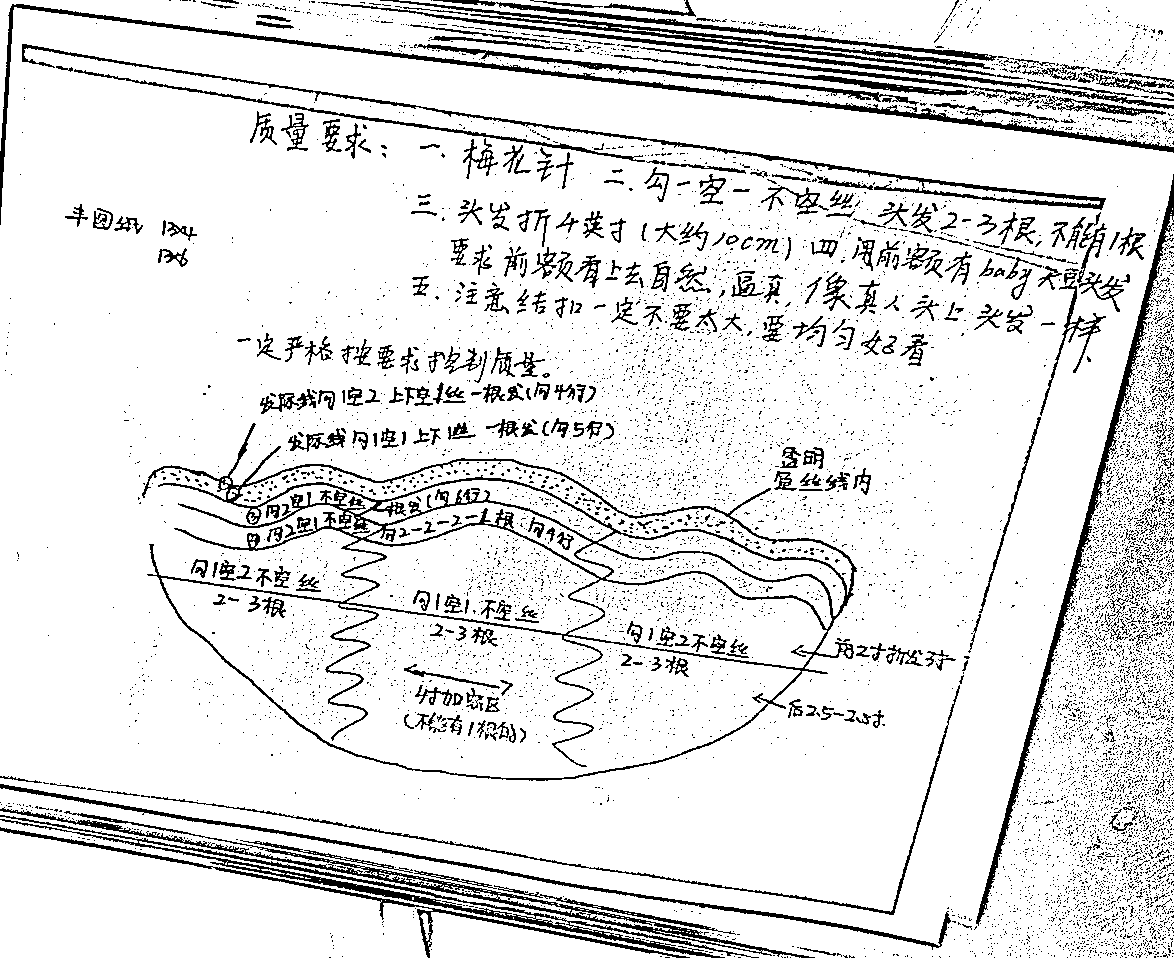 质量要求：一. 梅花针 二. 勾一空一不空丝 头发2-3根, 不能有1根
三. 头发折4英寸(大约10cm) 四. 用前额有baby 头发
要求前额看上去自然, 逼真, 像真人头上头发一样
五. 注意结扣一定不要太大, 要均匀好看
半圆纸 13×4
13×6
一定严格按要求控制质量。
发际线勾1空2 上下空1丝 一根发(勾4行)
发际线勾1空1 上下1丝 一根发(勾5行)
透明
丝线内
③勾2空1不空丝 2根发(勾6行)
④勾2空1不空丝 勾2-2-2-1根 勾4行
勾1空2不空丝
2-3根
勾1空1.不空丝
2-3根
勾1空2不空丝
2-3根
前2寸折发3寸
4寸加密区
(不能有1根的)
后2.5-2.8寸